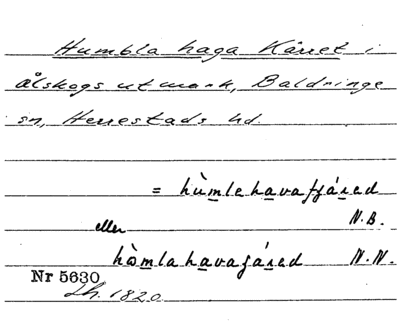 Humbla haga Kärret i
ålskogs utmark, Baldringe
sn, Herrestads hd.
= hùmlehavafjáred
N.B.
eller
hòmlahavajáred N.N.
Nr 5630
Lh. 1820